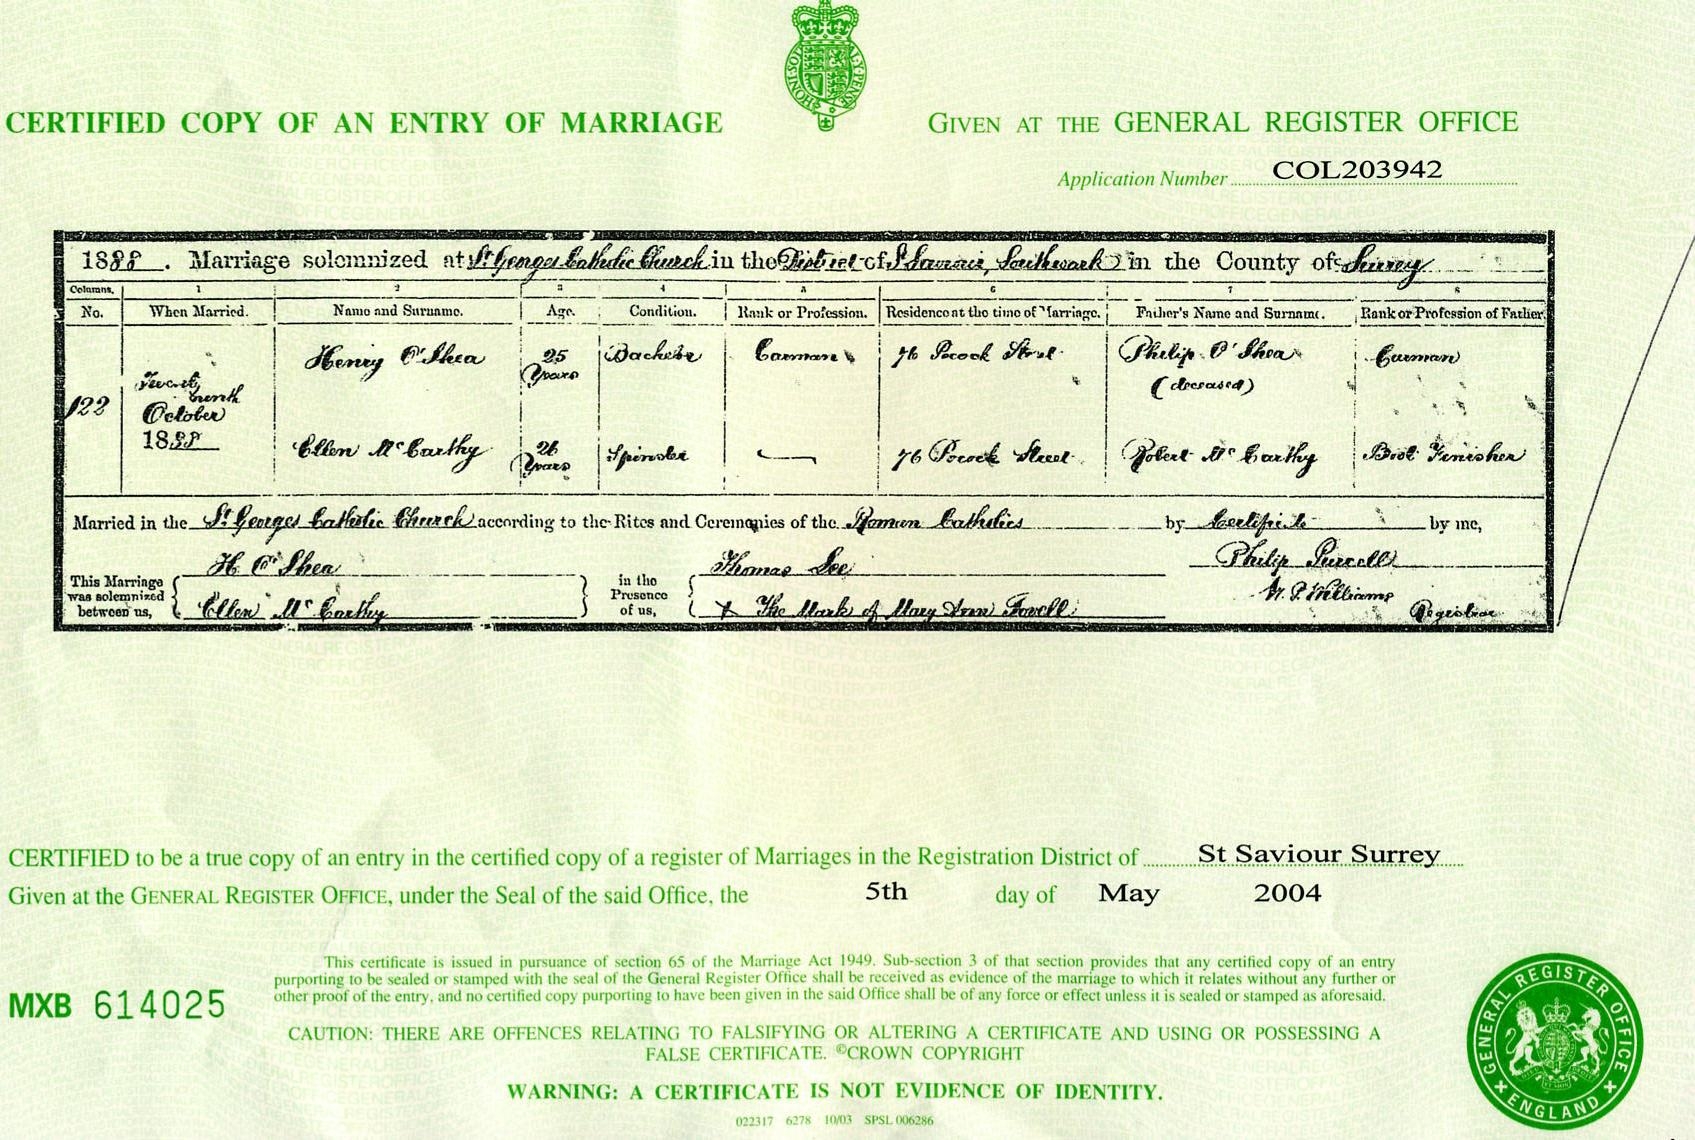 CERTIFIED COPY OF AN ENTRY OF MARRIAGE
HONI SOIT QUI MAL Y PENSE
GIVEN AT THE GENERAL REGISTER OFFICE
Application Number COL203942
1888. Marriage solemnized at St Georges Catholic Church in the District of St Saviour, Southwark in the County of Surrey
Columns. 1 2 3 4 5 6 7 8
No. When Married. Name and Surname. Age. Condition. Rank or Profession. Residence at the time of Marriage. Father's Name and Surname. Rank or Profession of Father.
Henry O'Shea 25 Years Bachelor Carman 76 Pocock Street Philip O'Shea (deceased) Carman
122 Twenty October 1888
Ellen McCarthy 26 Years Spinster — 76 Pocock Street Robert McCarthy Boot Finisher
Married in the St Georges Catholic Church according to the Rites and Ceremonies of the Roman Catholics by Certificate by me,
This Marriage was solemnized between us, H O'Shea in the Presence of us, Thomas Lee Philip Purcell
Ellen McCarthy X The Mark of Mary Ann W. P. Williams Registrar
CERTIFIED to be a true copy of an entry in the certified copy of a register of Marriages in the Registration District of St Saviour Surrey
Given at the GENERAL REGISTER OFFICE, under the Seal of the said Office, the 5th day of May 2004
This certificate is issued in pursuance of section 65 of the Marriage Act 1949. Sub-section 3 of that section provides that any certified copy of an entry
purporting to be sealed or stamped with the seal of the General Register Office shall be received as evidence of the marriage to which it relates without any further or
other proof of the entry, and no certified copy purporting to have been given in the said Office shall be of any force or effect unless it is sealed or stamped as aforesaid.
MXB 614025
CAUTION: THERE ARE OFFENCES RELATING TO FALSIFYING OR ALTERING A CERTIFICATE AND USING OR POSSESSING A
FALSE CERTIFICATE. ©CROWN COPYRIGHT
WARNING: A CERTIFICATE IS NOT EVIDENCE OF IDENTITY.
022317 6278 10/03 SPSL 006286
GENERAL REGISTER OFFICE ENGLAND